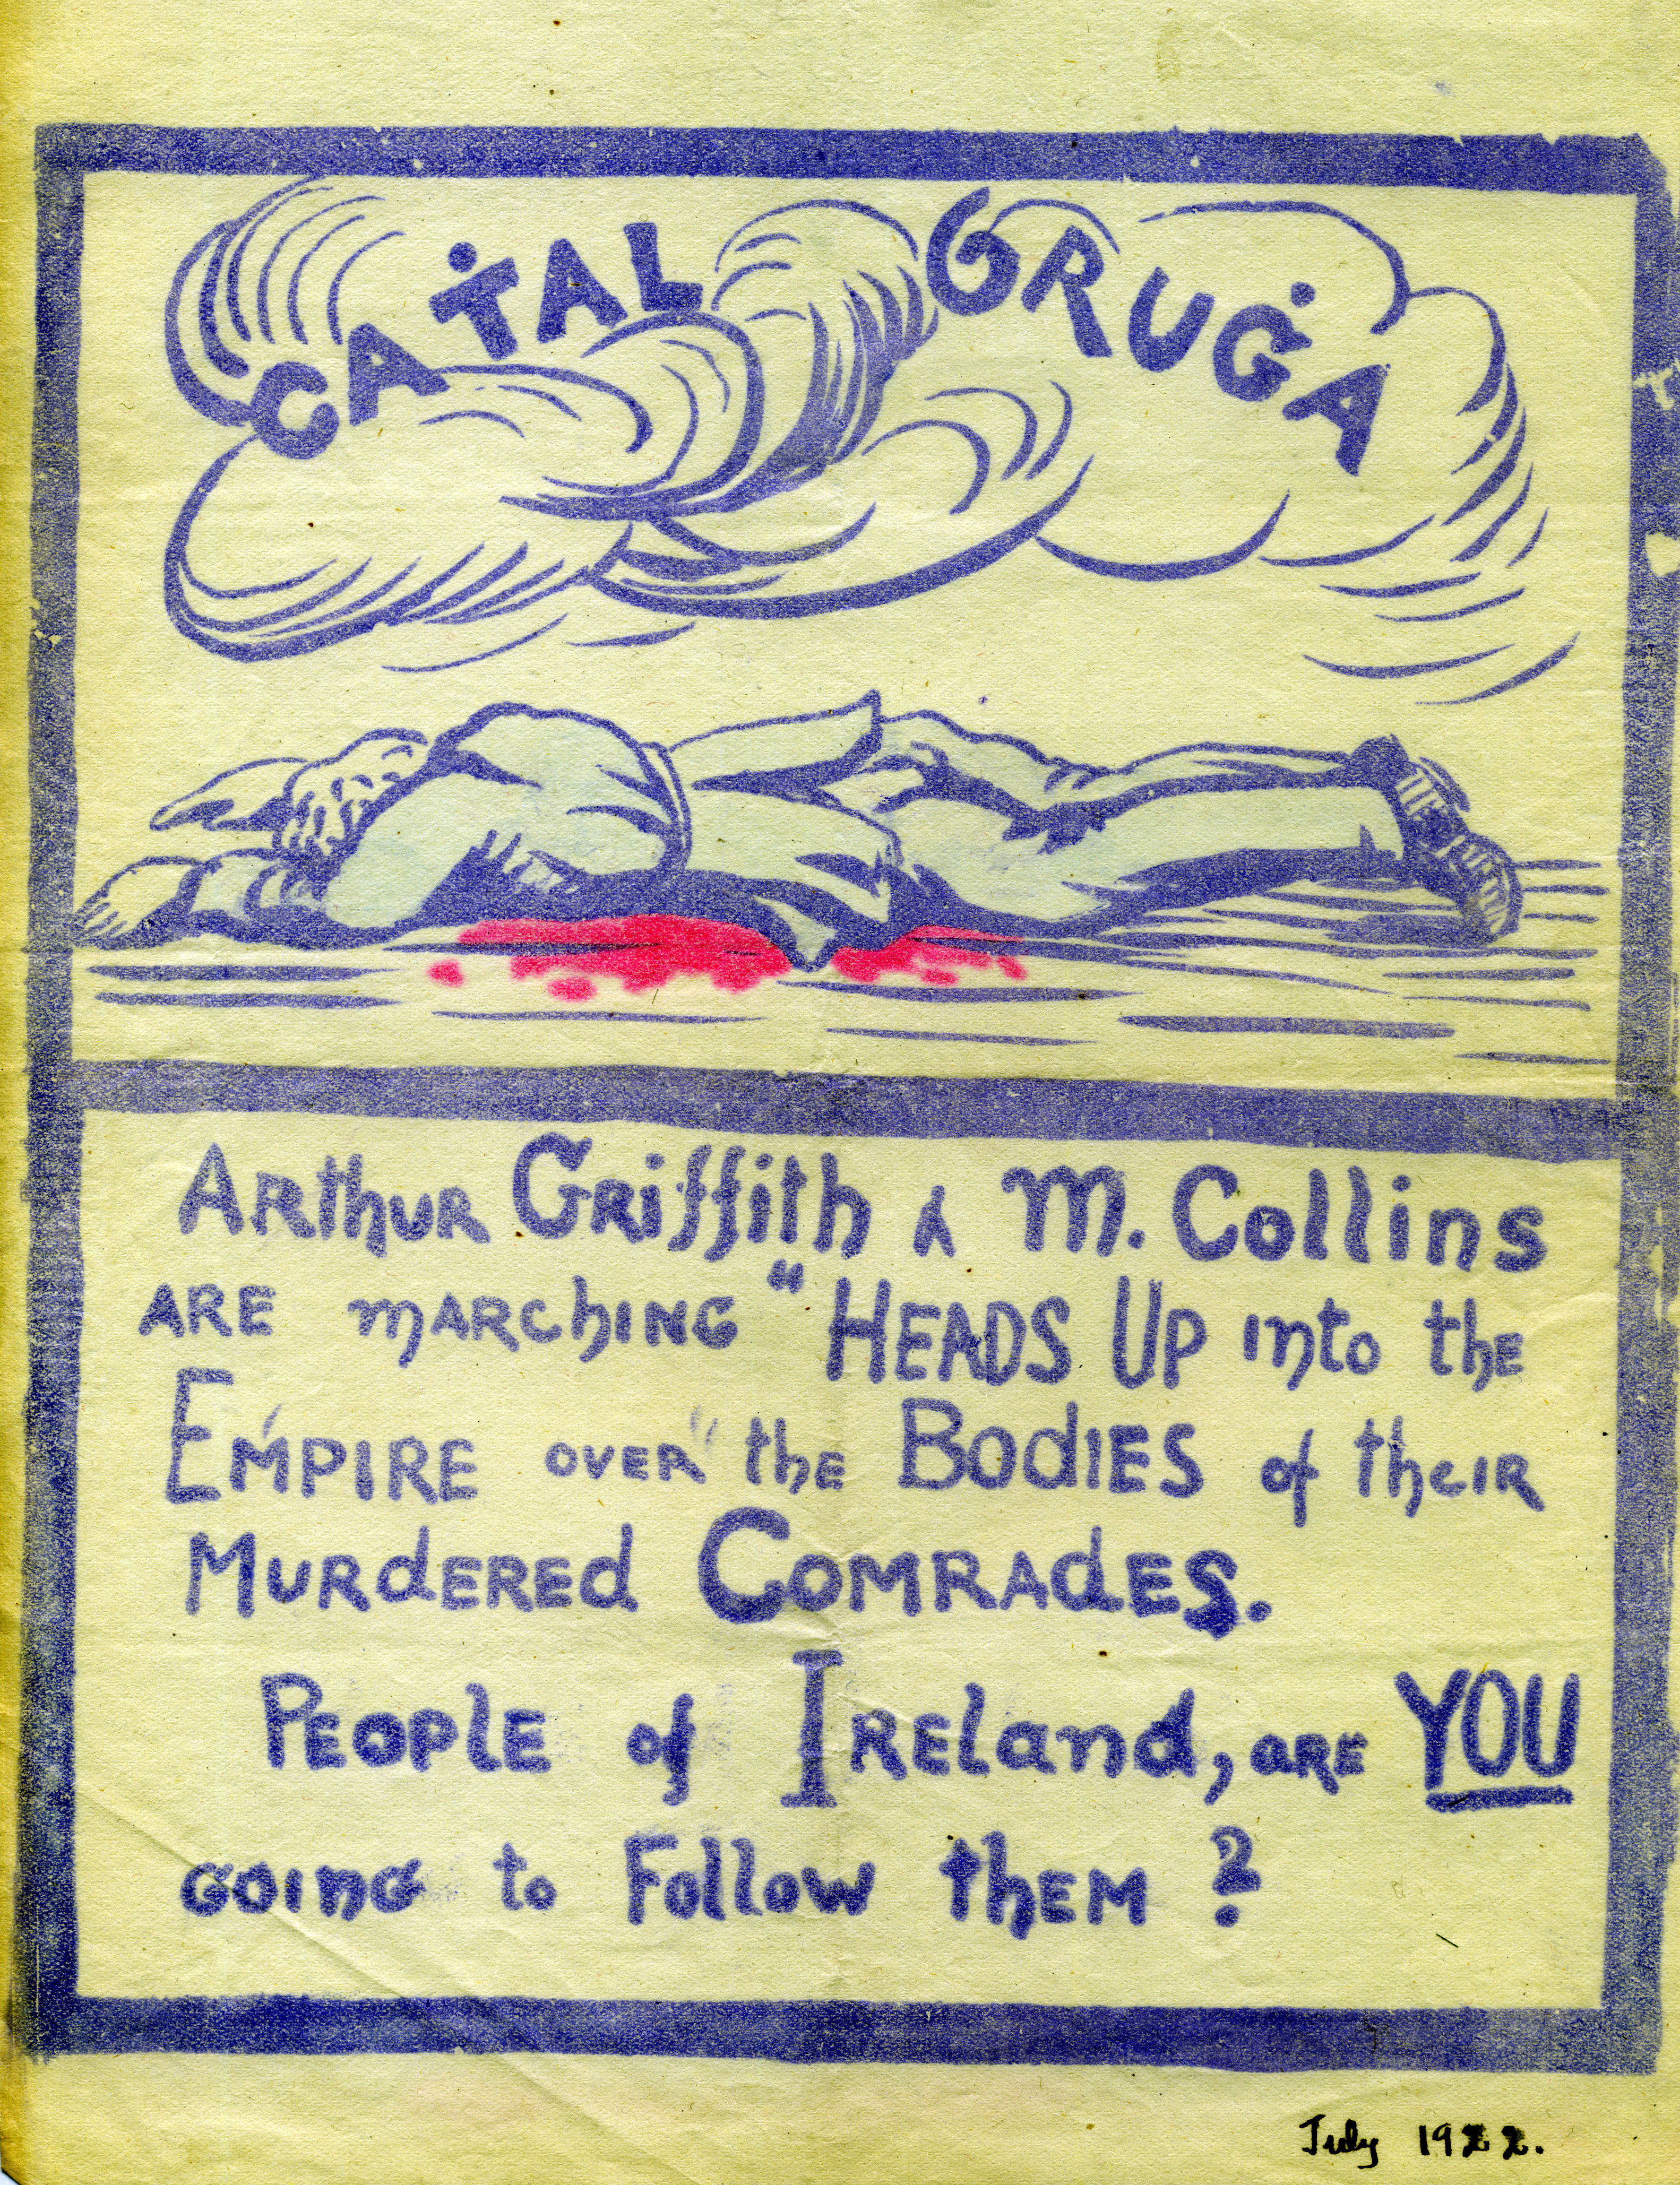 CAṪAL GRUĠA
Arthur Griffith & M. Collins
are marching “Heads Up into the
Empire over” the Bodies of their
Murdered Comrades.
People of Ireland, are YOU
going to Follow them?
July 1922.